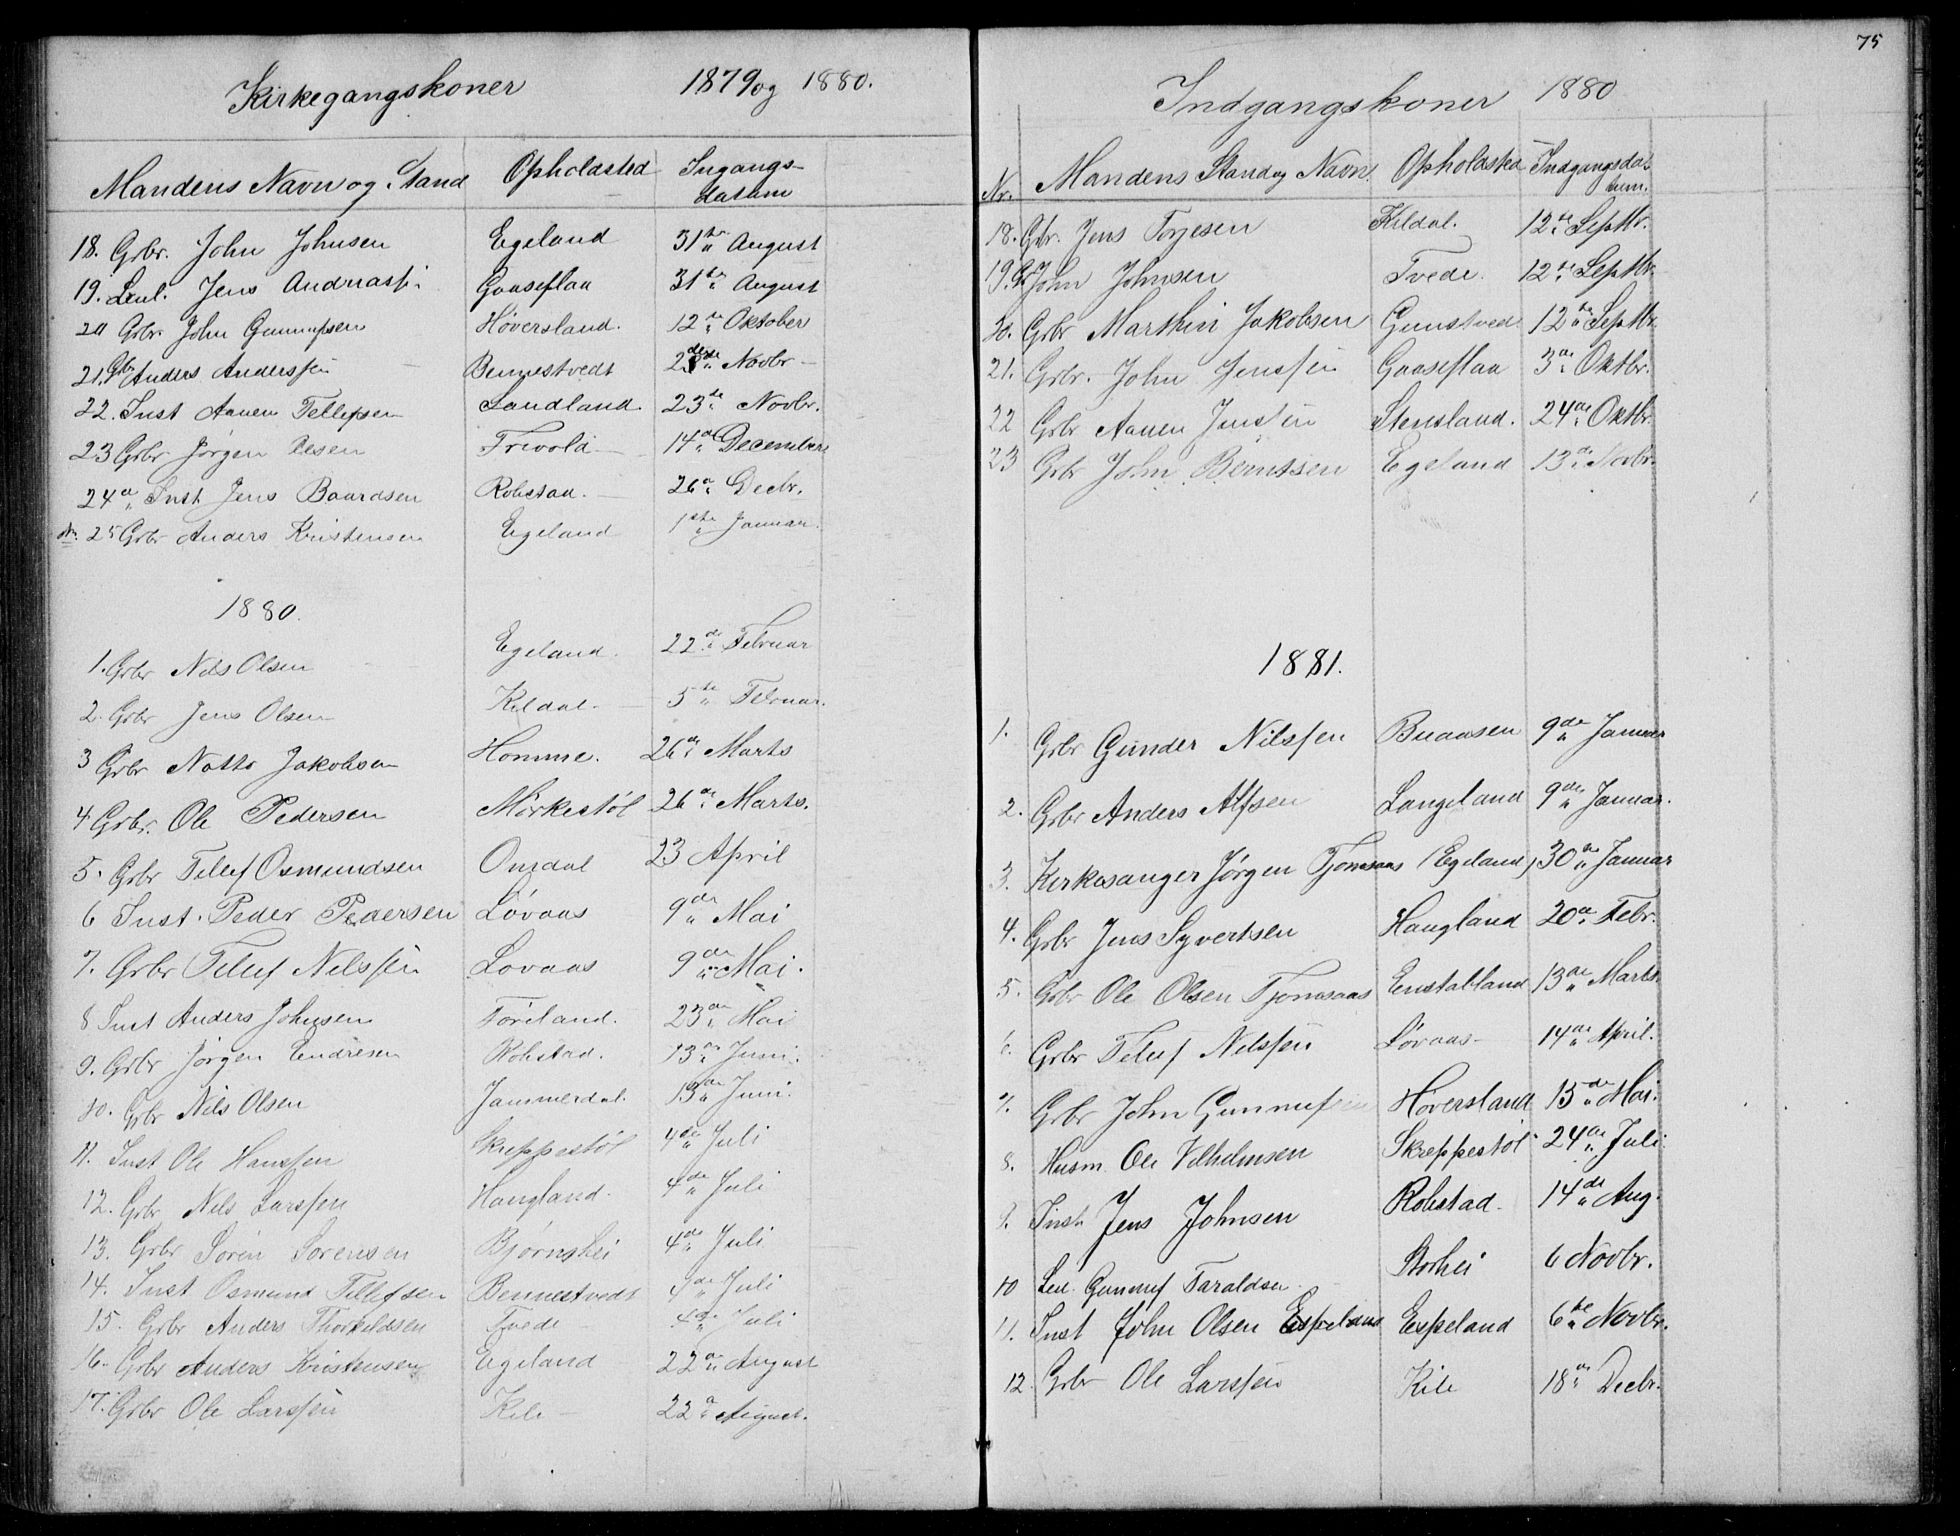 Kirkegangskoner 1879 og 1880.
Mandens Navn og Stand Opholdsted Ingangs-
datum
18. Grbr. John Johnsen Egeland 31te August
19. Leil. Jens Andreas Gaaseflaa 31te August
20 Grbr. John Gunnufsen Høversland. 12te Oktober
21. Gbr Anders Anderssen Bennestvedt 23de Novbr
22. Inst Aanen Tellefsen Landland. 23de Novbr.
23 Grbr Jørgen Trevold 14de December
24de Inst Jens Baardsen Robstad. 26de Decbr.
No. 25 Grbr Anders Kristensen Egeland 1ste Januar.
1880.
1. Grbr Nils Olsen Egeland. 22de Februar
2. Grbr Jens Olsen Kildal. 5te Februar.
3 Grbr Notto Jakobsen Homme. 26de Marts
4 Grbr. Ole Pedersen Mörkestøl 26de Marts.
5. Grbr Tellef Osmundsen Omdal 23 April
6 Inst. Peder Pedersen Løvaas 9de Mai
7. Grbr Tellef Nilssen Lövaas 9de Mai.
8 Inst Anders Johnsen Töreland. 23de Mai
9. Grbr Jørgen Endresen Robstad. 13de Juni.
10. Grbr Nils Olsen Jammerdal. 13de Juni.
11. Inst Ole Hanssen Skreppestøl 4de Juli
12. Grbr Nils Larssen Haugland. 4de Juli
13. Grbr Sören Sörensen Bjørnshei 4de Juli
14. Inst Osmund Tellefsen Bennestvedt 4de Juli
15. Grbr Anders Thorkildsen Tvede 4de Juli
16. Grbr Anders Kristensen Egeland 22de August
17. Grbr Ole Larssen Kile 22de August.
75
Indgangskoner 1880
Nr. Mandens Stand og Navn. Opholdsted Indgangsda-
tum.
18. Grbr. Jens Torjesen Kildal. 12te Septbr.
19. Gr John Johnsen Tvede. 12te Septbr.
20. Grbr Marthin Jakobsen Gunstved 12te Septbr.
21. Grbr. John Jenssen Gaaseflaa 3de Oktbr.
22 Grbr Aanen Jenssen Stensland. 24de Oktbr.
23 Grbr John Berntsen Egeland 13de Novbr.
1881.
1. Grbr Gunder Nilssen Buaasen 9de Januar
2. Grbr Anders Alfsen Langeland 9de Januar.
3. Kirkesanger Jørgen Tjomsaas (Egeland) 30te Januar
4. Grbr Jens Syvertsen Haugland 20de Febr.
5. Grbr Ole Olsen Tjomsaas Enstabland 13de Marts.
6. Grbr Tellef Nilssen Løvaas- 14de April.
7. Grbr John Gunnufsen Høversland 15de Mai.
8. Husm. Ole Vilhelmsen Skreppestöl 24de Juli
9. Inst. Jens Johnsen Robstad. 14de Aug.
10 Lei. Gunnuf Taraldsen Storhei 6 Novbr.
11. Inst John Olsen Espeland Espeland 6te Novbr.
12. Grbr Ole Larssen Kile 18de Decbr.